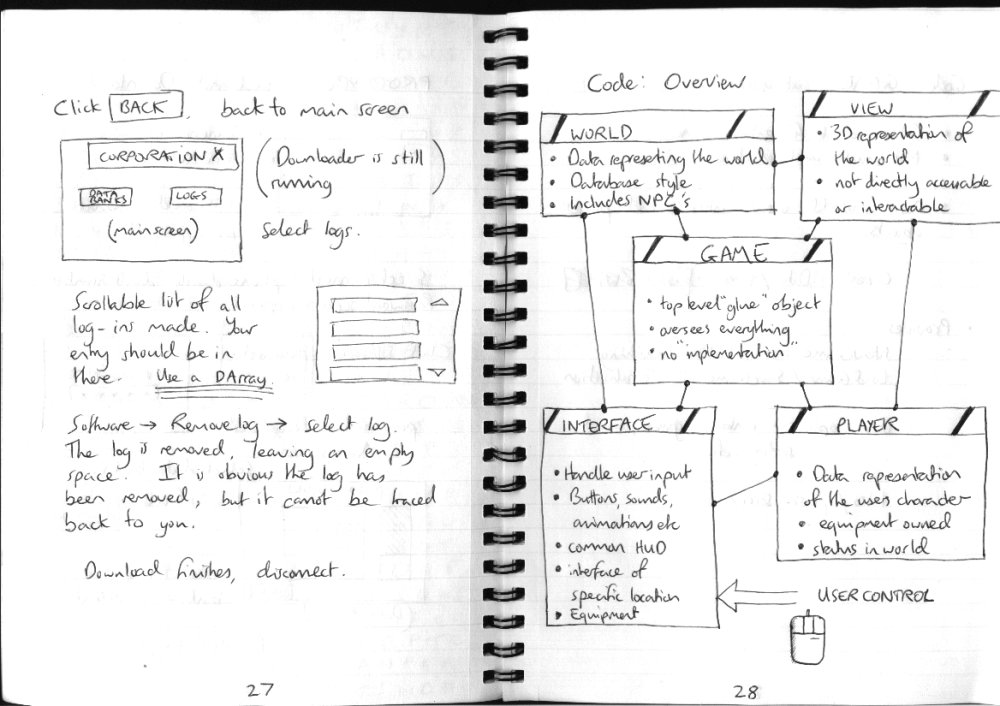 Click BACK, back to main screen
CORPORATION X
DATA BANKS
LOGS
(main screen)
(Downloader is still
running)
Select logs.
Scrollable list of all
log-ins made. Your
entry should be in
there. Use a DArray.
Software → Removelog → select log.
The log is removed, leaving an empty
space. It is obvious the log has
been removed, but it cannot be traced
back to you.
Download finishes, disconnect.
27
Code: Overview
WORLD
• Data represeting the world
• Database style
• Includes NPC's
VIEW
• 3D representation of
the world
• not directly accessable
or interactable
GAME
• top level "glue" object
• oversees everything
• no "implementation"
INTERFACE
• Handle user input
• Buttons, sounds,
animations etc
• common HUD
• interface of
specific location
• Equipment
PLAYER
• Data representation
of the users character
• equipment owned
• status in world
USER CONTROL
28